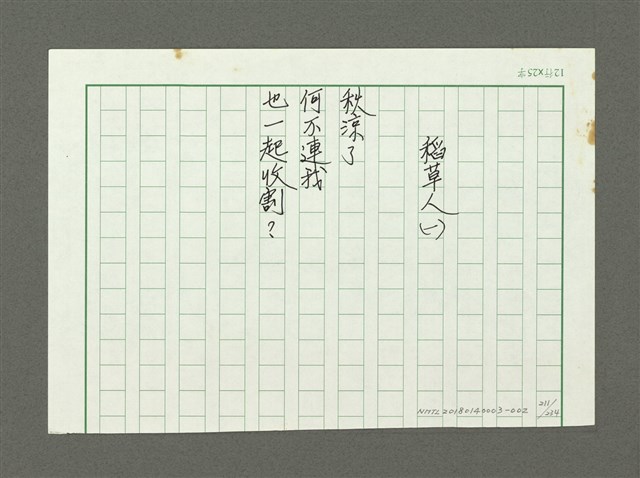 稻草人(一)
秋涼了
何不連我
也一起收割？
12行X25字
NMTL20180140003-002
211/234